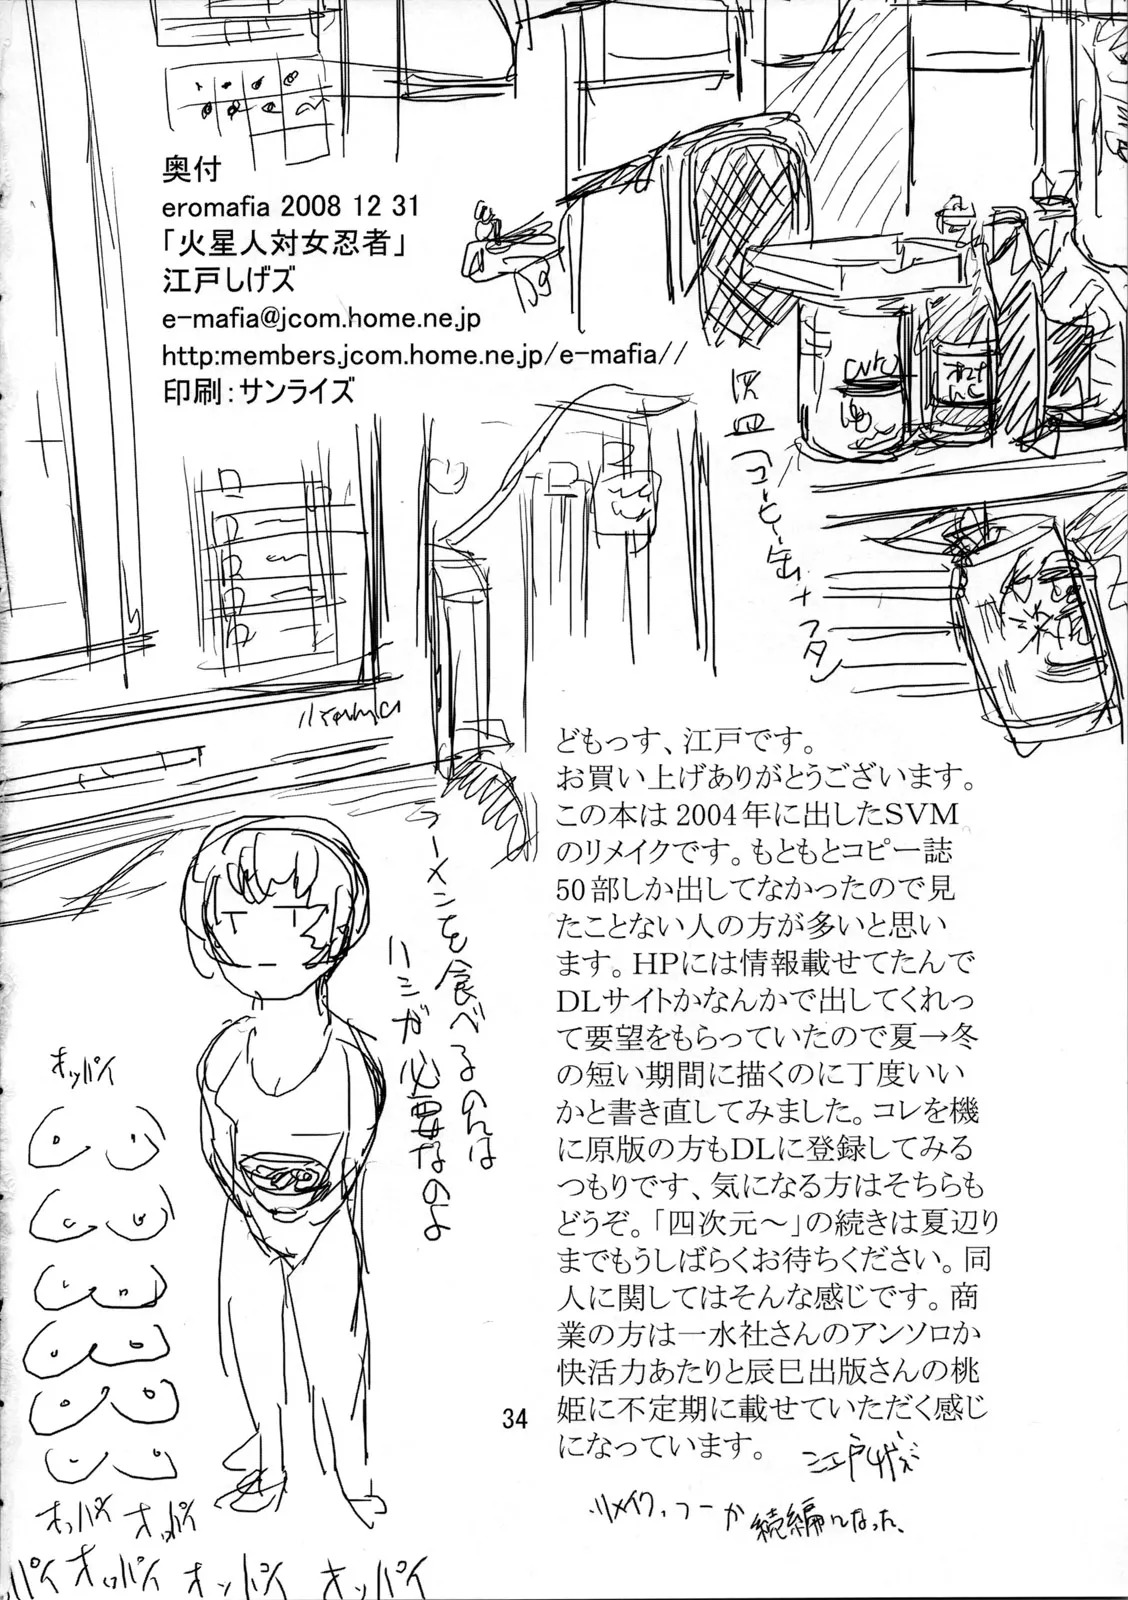 奥付
eromafia 2008 12 31
「火星人対女忍者」
江戸しげズ
e-mafia@jcom.home.ne.jp
http:members.jcom.home.ne.jp/e-mafia//
印刷：サンライズ
灰皿(コーヒー缶+フタ)
どもっす、江戸です。
お買い上げありがとうございます。
この本は2004年に出したSVM
のリメイクです。もともとコピー誌
50部しか出してなかったので見
たことない人の方が多いと思い
ます。HPには情報載せてたんで
DLサイトかなんかで出してくれっ
て要望をもらっていたので夏→冬
の短い期間に描くのに丁度いい
かと書き直してみました。コレを機
に原版の方もDLに登録してみる
つもりです、気になる方はそちらも
どうぞ。「四次元～」の続きは夏辺り
までもうしばらくお待ちください。同
人に関してはそんな感じです。商
業の方は一水社さんのアンソロか
快活力あたりと辰巳出版さんの桃
姫に不定期に載せていただく感じ
になっています。
江戸しげズ
リメイク、つーか続編になった、
ラーメンを食べるのには
ハシが必要なのよ
オッパイ
オッパイ オッパイ
ッパイ オッパイ オッパイ オッパイ
34